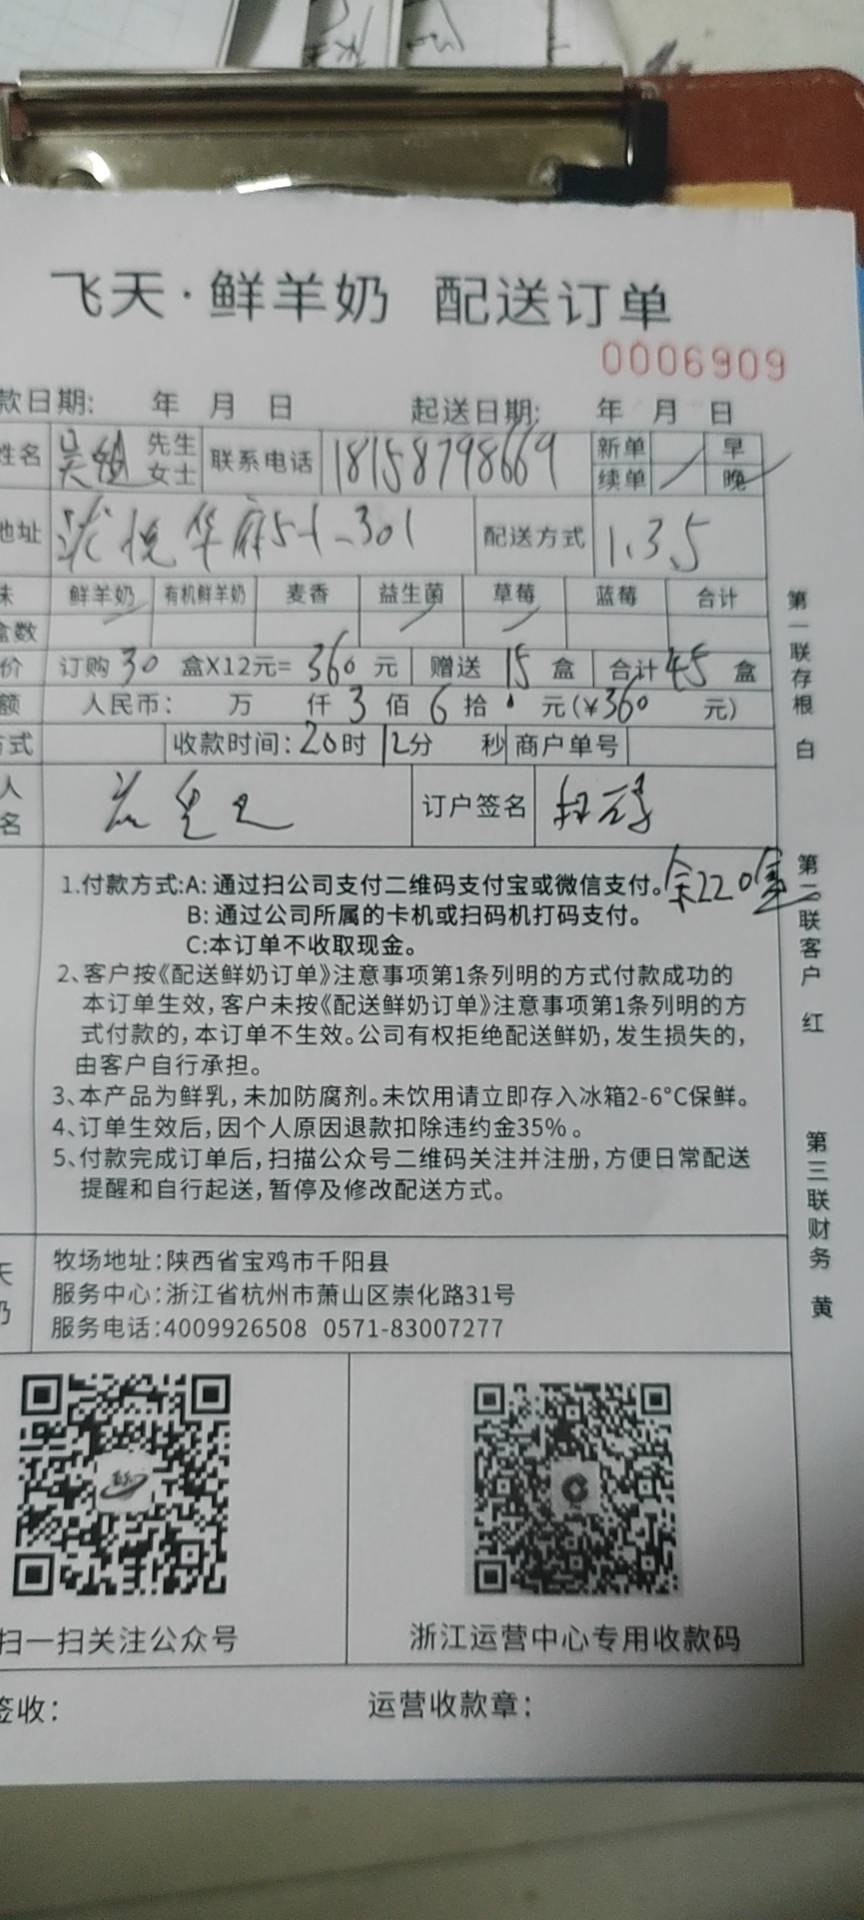 飞天·鲜羊奶 配送订单
0006909
款日期: 年 月 日 起送日期: 年 月 日
姓名 吴 先生 女士 联系电话 18158798669 新单 早
续单 晚
地址 悦华府5-1-301 配送方式 1.3.5
味 鲜羊奶 有机鲜羊奶 麦香 益生菌 草莓 蓝莓 合计
盒数
价 订购30盒X12元=360元 赠送15盒 合计45盒
额 人民币: 万 仟3佰6拾 元(¥360 元)
方式 收款时间:20时12分 秒 商户单号
人
名 订户签名 扫码
1.付款方式:A:通过扫公司支付二维码支付宝或微信支付。余220盒
B:通过公司所属的卡机或扫码机打码支付。
C:本订单不收取现金。
2、客户按《配送鲜奶订单》注意事项第1条列明的方式付款成功的
本订单生效,客户未按《配送鲜奶订单》注意事项第1条列明的方
式付款的,本订单不生效。公司有权拒绝配送鲜奶,发生损失的,
由客户自行承担。
3、本产品为鲜乳,未加防腐剂。未饮用请立即存入冰箱2-6°C保鲜。
4、订单生效后,因个人原因退款扣除违约金35%。
5、付款完成订单后,扫描公众号二维码关注并注册,方便日常配送
提醒和自行起送,暂停及修改配送方式。
天
奶
牧场地址:陕西省宝鸡市千阳县
服务中心:浙江省杭州市萧山区崇化路31号
服务电话:4009926508 0571-83007277
扫一扫关注公众号
浙江运营中心专用收款码
签收:
运营收款章:
第一联存根 白
第二联客户 红
第三联财务 黄